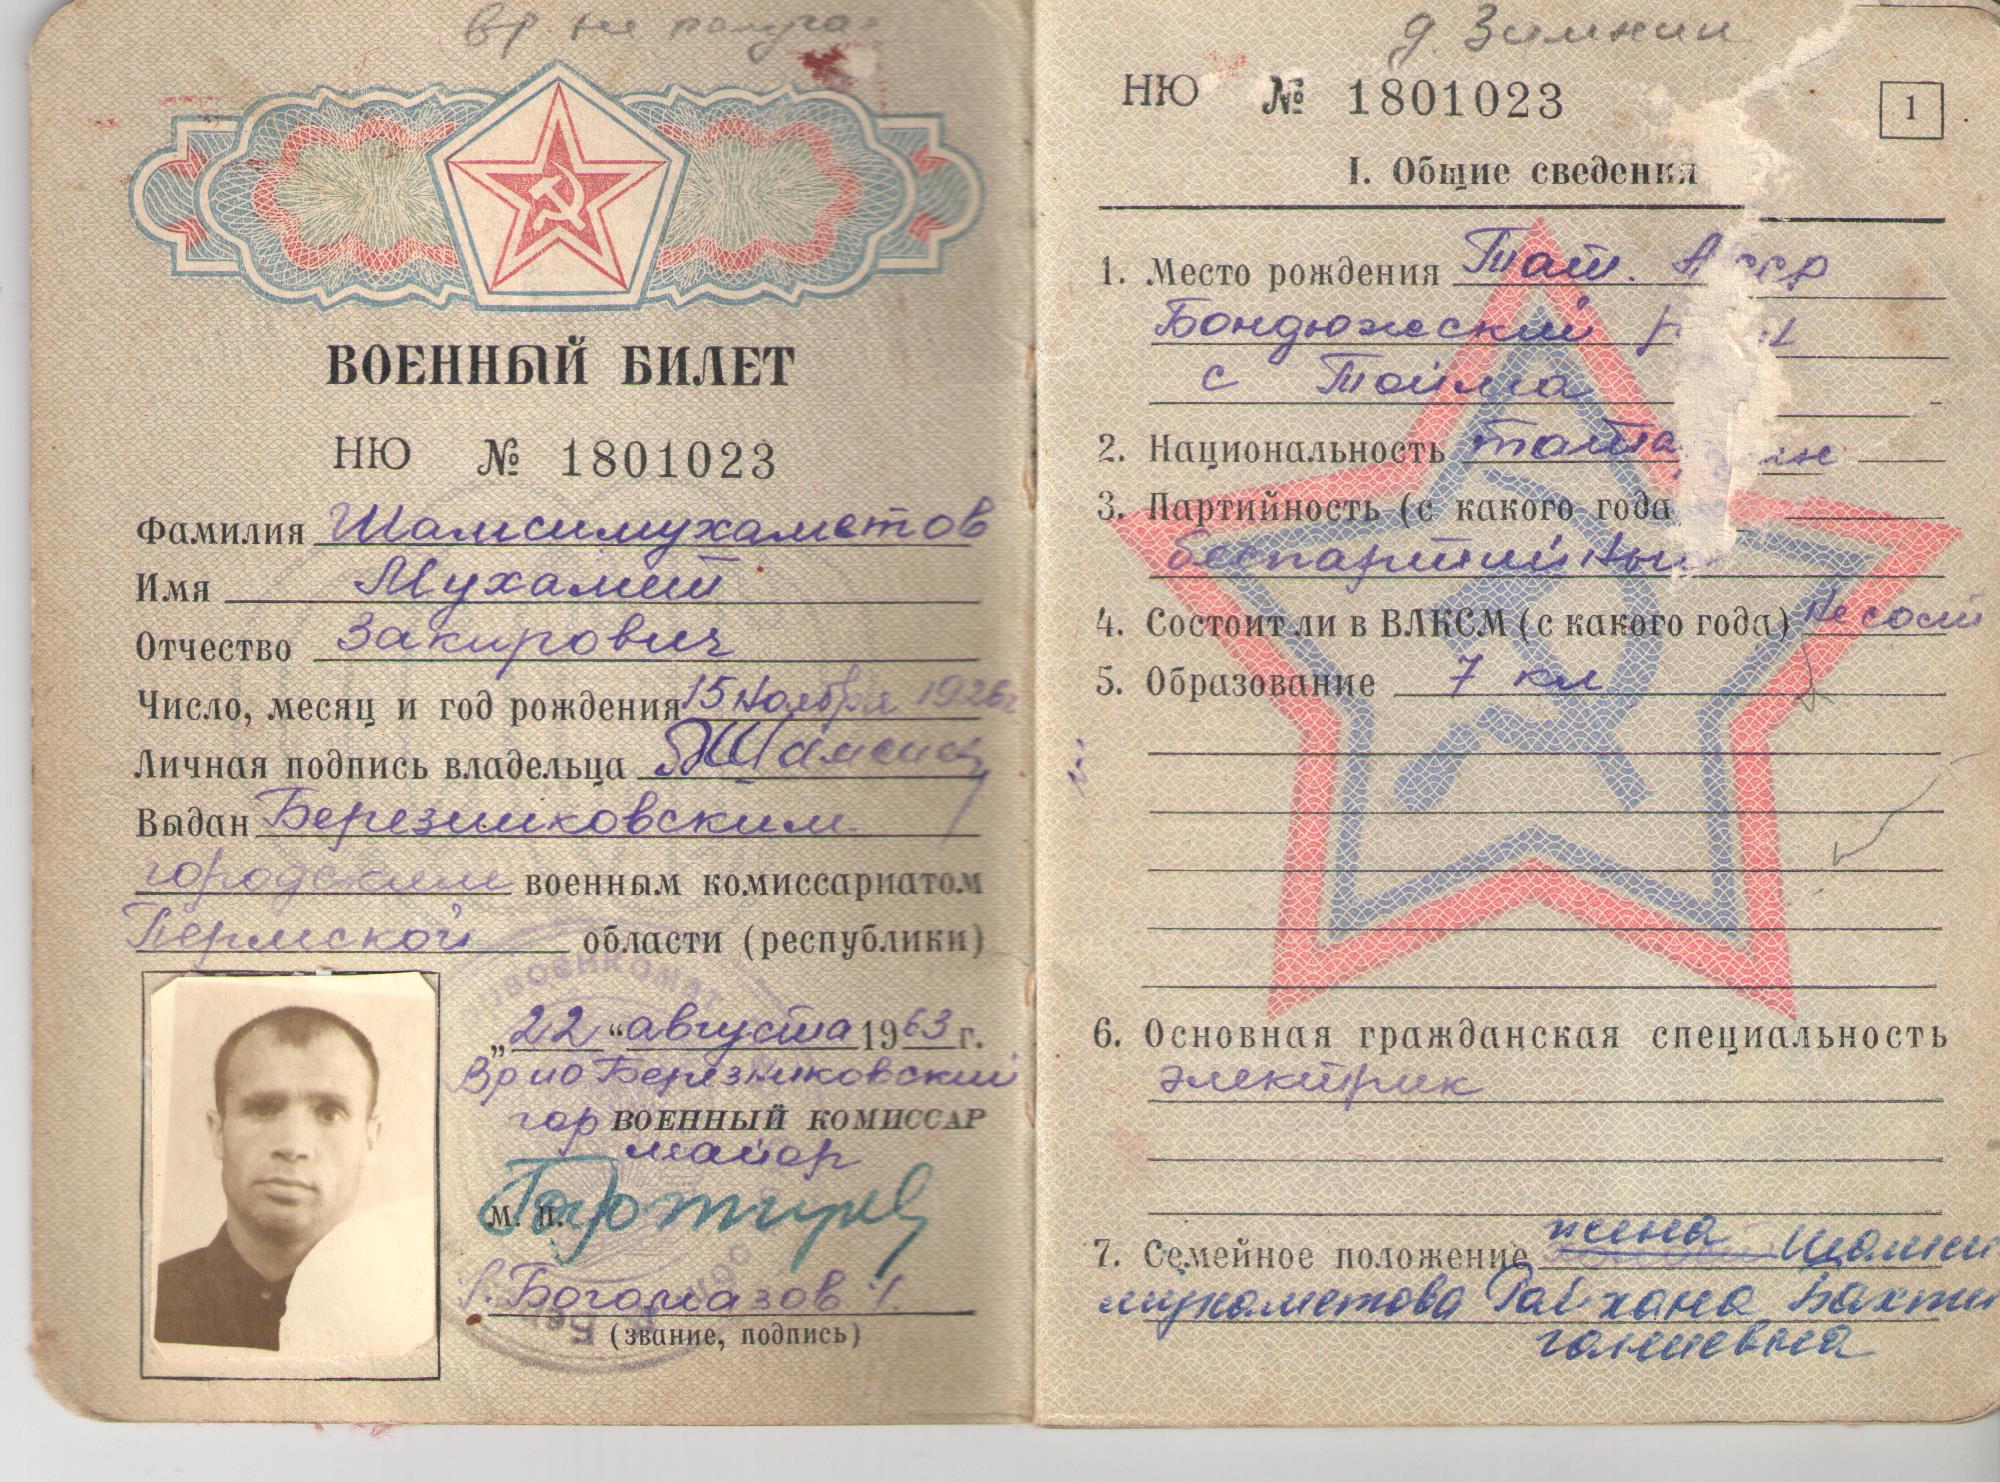 вр. не
ВОЕННЫЙ БИЛЕТ
НЮ № 1801023
Фамилия Шамсимухаметов
Имя Мухамет
Отчество Закирович
Число, месяц и год рождения 15 ноября 1926г
Личная подпись владельца
Выдан Березниковским
городским военным комиссариатом
Пермской области (республики)
„22“ августа 1963 г.
Врио Березниковский
гор ВОЕННЫЙ КОМИССАР
майор
М. П.
Богомазов
(звание, подпись)
д. Зимнии
НЮ № 1801023
1
I. Общие сведения
1. Место рождения Тат. АССР
Бондюжский
с Тойма
2. Национальность татарин
3. Партийность (с какого года
беспартийный
4. Состоит ли в ВЛКСМ (с какого года) не сост
5. Образование 7 кл
6. Основная гражданская специальность
электрик
7. Семейное положение жена Шамси
мухаметова Райхана Бахти
галиевна